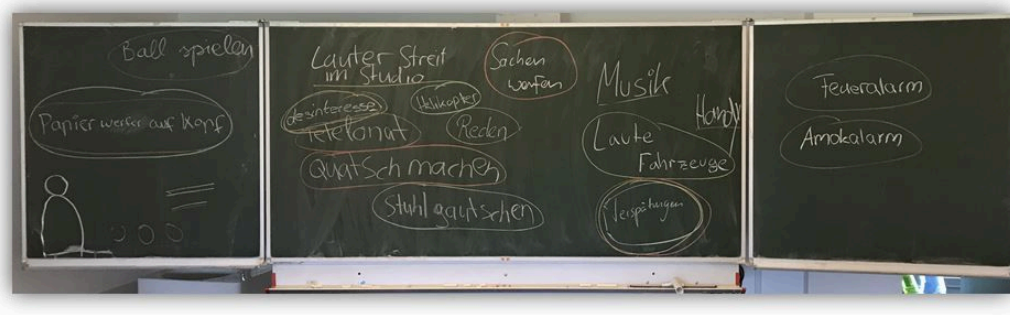 Ball spielen
Papier werfen auf Kopf
Lauter Streit
im Studio
Sachen
werfen
desinteresse
Helikopter
Telefonat
Reden
Quatsch machen
Stuhlgautschen
Musik
Handy
Laute
Fahrzeuge
Verspätungen
Feueralarm
Amokalarm